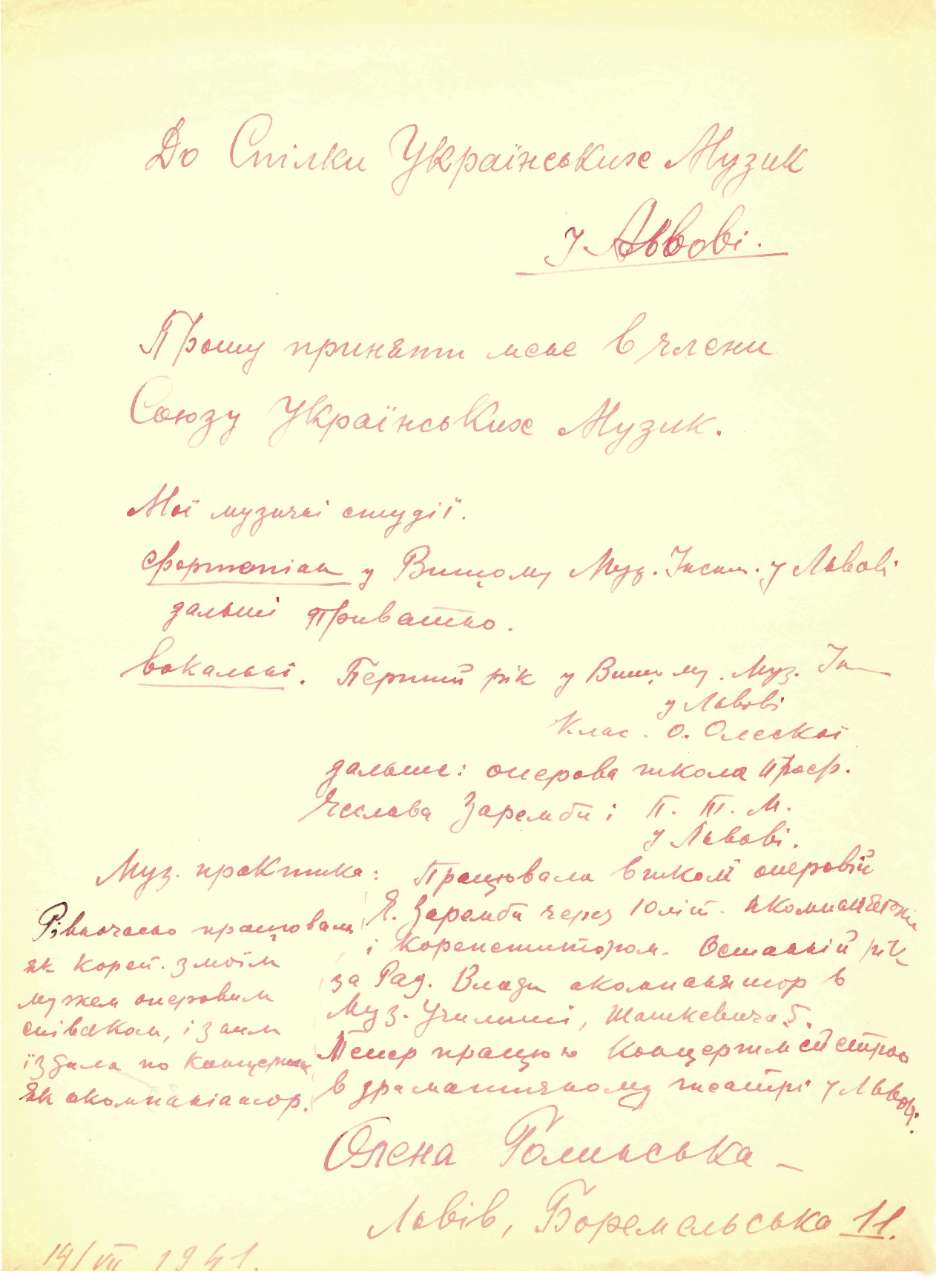 До Спілки Українських Музик
у Львові.
Прошу приняти мене в члени
Союзу Українських Музик.
Мої музичні студії.
Фортепіан у Вищому Муз. Інст. у Львові
дальші приватно.
Вокальні. Перший рік у Вищому. Муз. Ін
у Львові
Клас. О. Олеської
дальше: оперова школа проф.
Чеслава Заремби і П. Т. М.
у Львові.
Муз. практика: Працювала в школі оперовій
Ч. Заремби через 10 літ.
і корепетитором. Останній рік
за Рад. Влади акомпаніятор в
Муз. Училищі, Шашкевича 5.
Тепер працюю концертмейстром
в драматичному театрі у Львові.
Рівночасно працювала
як кореп. з моїм
мужем оперовим
співаком, і з ним
їздила по концертах
як акомпаніатор.
Олена Голинська
Львів, Боремельська 11.
14/VII 1941.